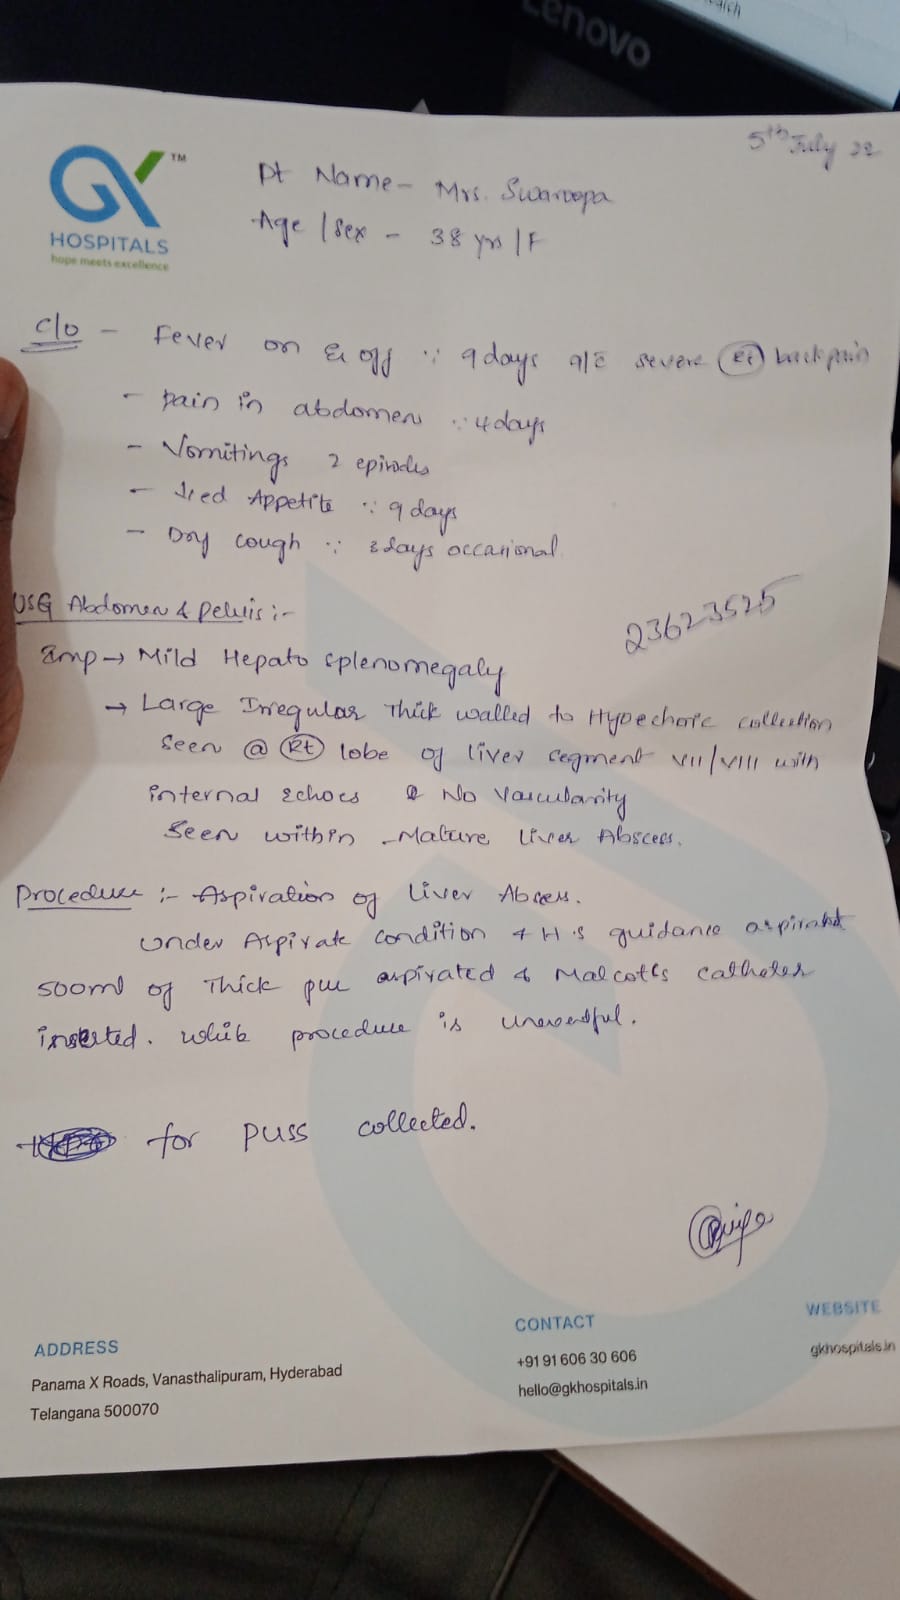 Lenovo
5th July 22
GK TM
HOSPITALS
hope meets excellence
Pt Name - Mrs. Swaroopa
Age / Sex - 38 yrs / F
C/o - Fever on & off ∵ 9 days a/c severe Rt back pain
- pain in abdomen ∵ 4 days
- Vomitings 2 episodes
- ↓sed Appetite ∵ 9 days
- Dry cough ∵ days occasional
USG Abdomen & Pelvis :-
23623525
Imp → Mild Hepato splenomegaly
→ Large Irregular Thick walled to Hypoechoic collection
seen @ Rt lobe of liver segment VII/VIII with
internal echoes & No Vascularity
seen within - Mature Liver Abscess.
Procedure :- Aspiration of Liver Abcess.
Under Aspirate condition & guidance aspirated
500ml of Thick pus aspirated & Malcotts catheter
inserted. while procedure is unevendful.
for PUSS collected.
ADDRESS
Panama X Roads, Vanasthalipuram, Hyderabad
Telangana 500070
CONTACT
+91 91 606 30 606
hello@gkhospitals.in
WEBSITE
gkhospitals.in